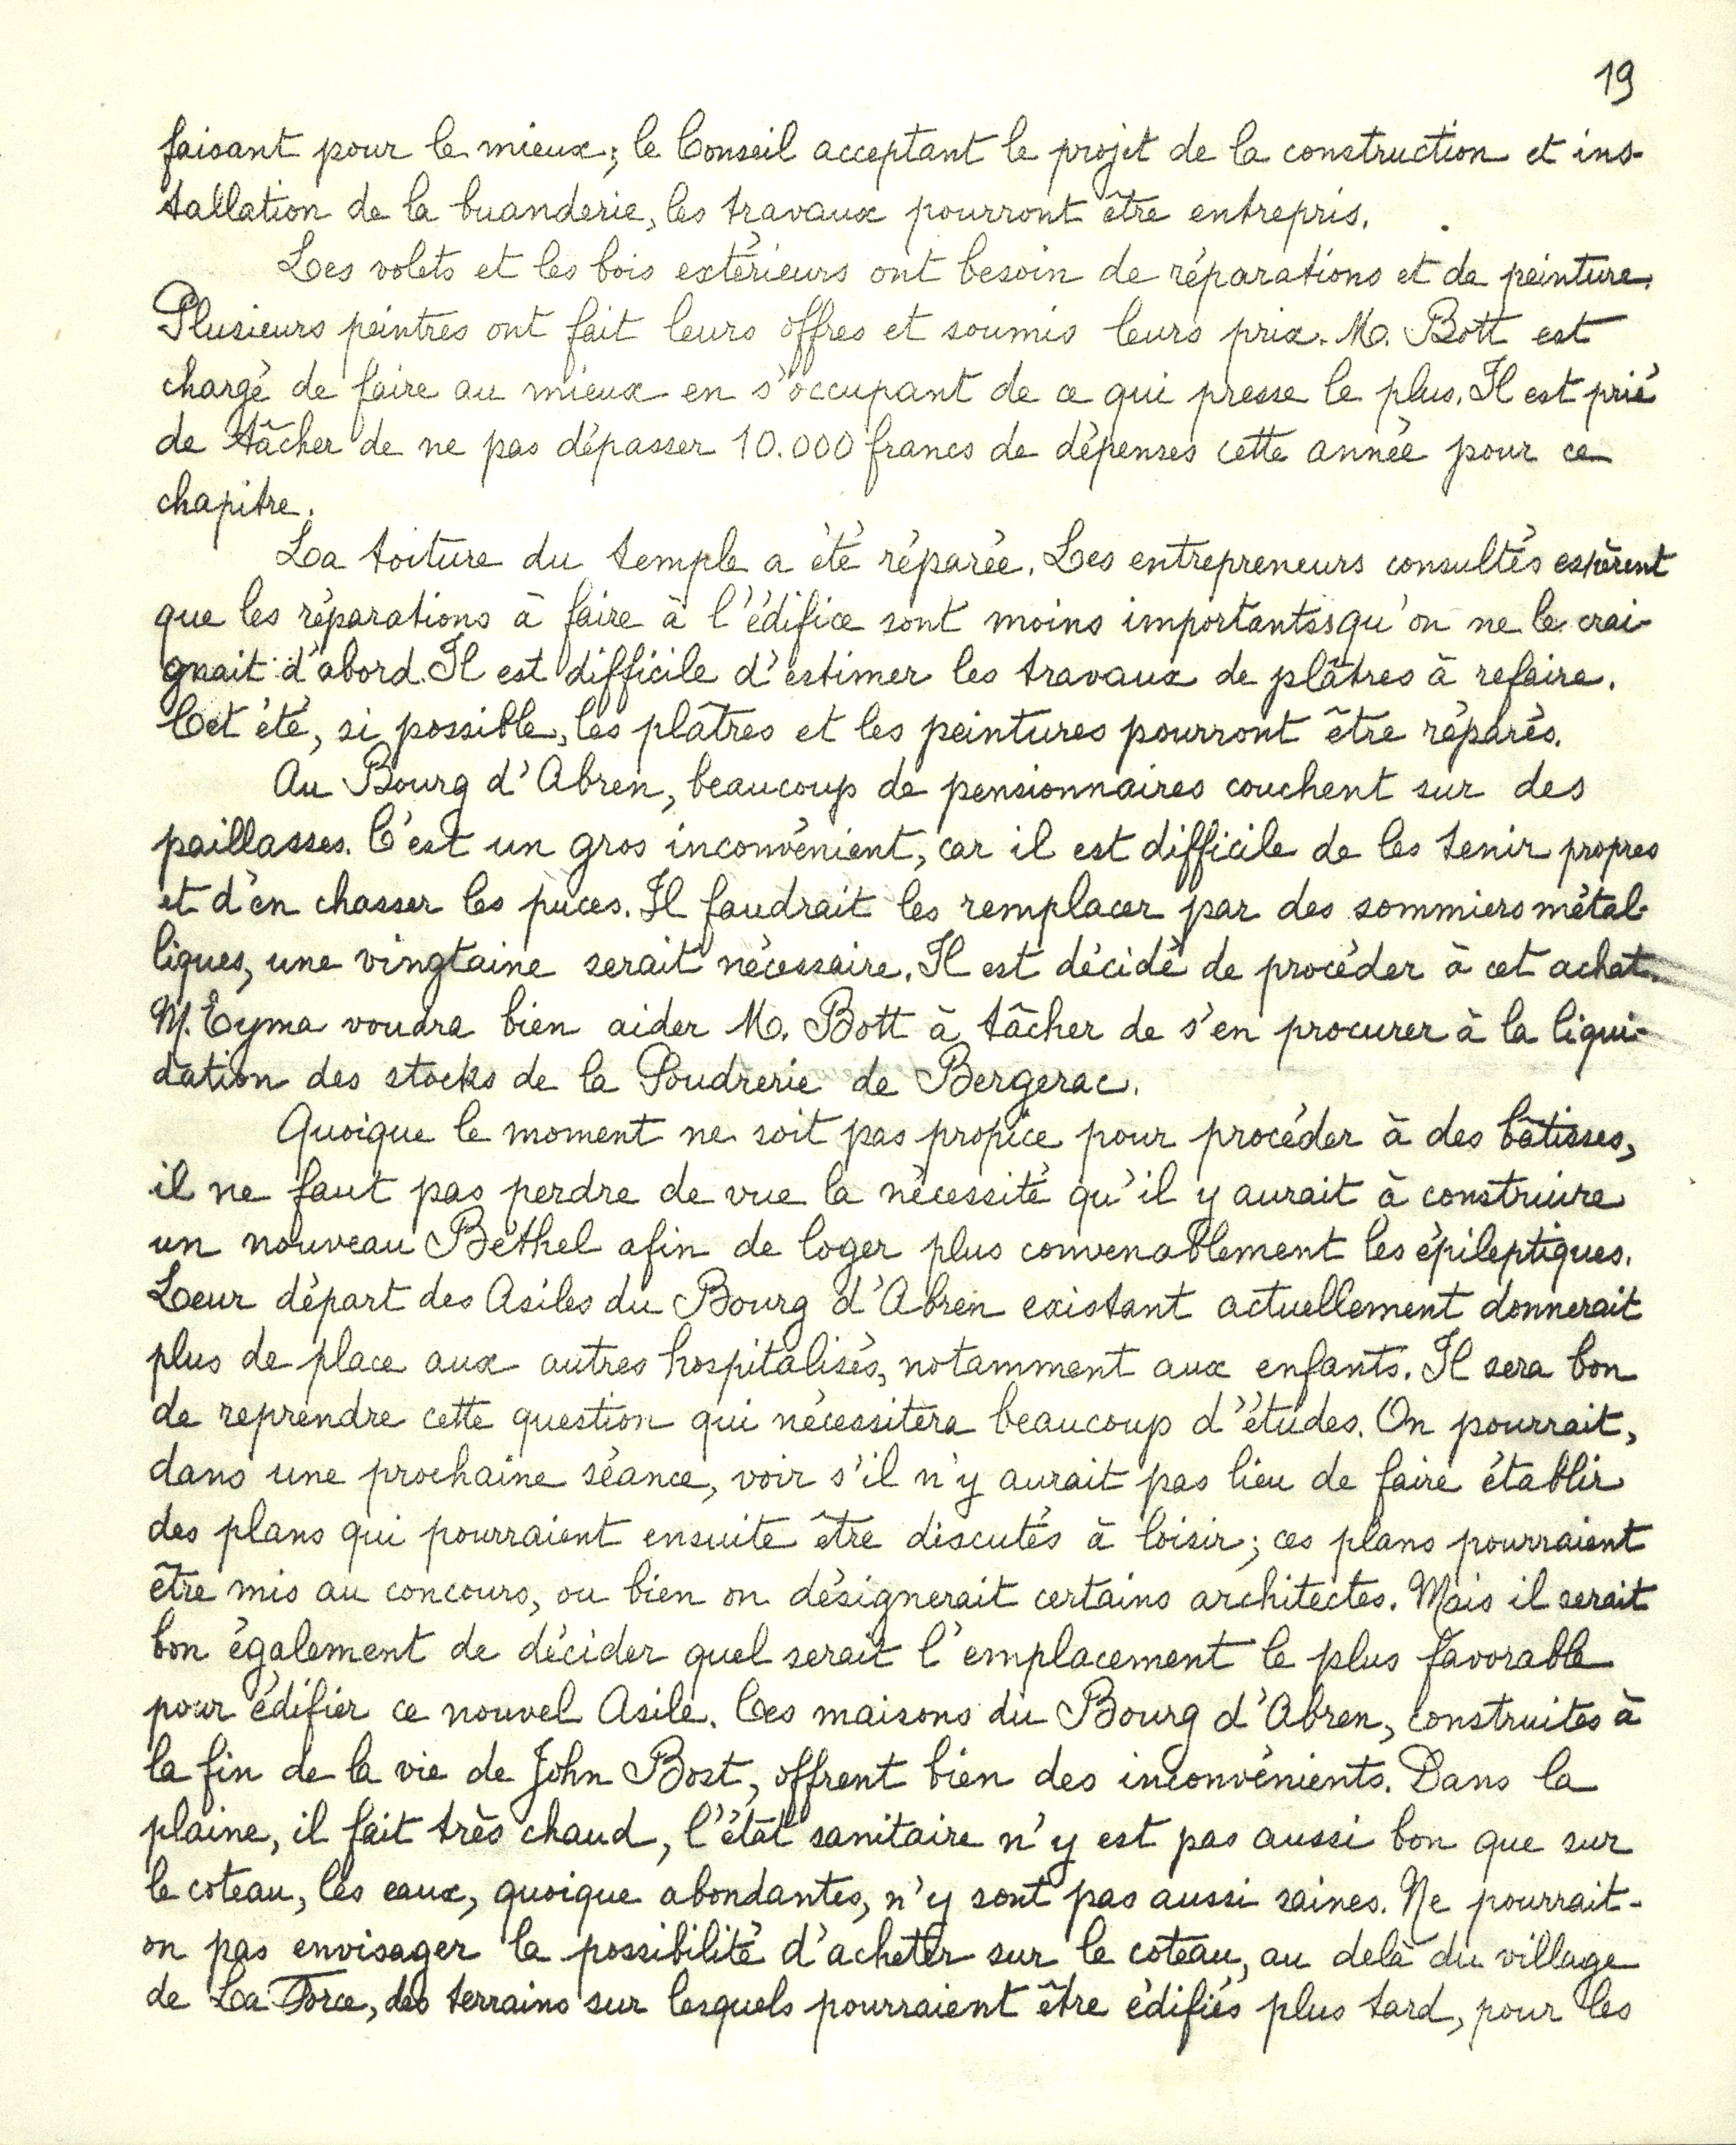 19
faisant pour le mieux; le Conseil acceptant le projet de la construction et ins-
tallation de la buanderie, les travaux pourront être entrepris.
Les volets et les bois extérieurs ont besoin de réparations et de peinture.
Plusieurs peintres ont fait leurs offres et soumis leurs prix. M. Bott est
chargé de faire au mieux en s'occupant de ce qui presse le plus. Il est prié
de tâcher de ne pas dépasser 10.000 francs de dépenses cette année pour ce
chapitre.
La toiture du temple a été réparée. Les entrepreneurs consultés espèrent
que les réparations à faire à l'édifice sont moins importantes qu'on ne le crai-
gnait d'abord. Il est difficile d'estimer les travaux de plâtres à refaire.
Cet été, si possible, les plâtres et les peintures pourront être réparés.
Au Bourg d'Abren, beaucoup de pensionnaires couchent sur des
paillasses. C'est un gros inconvénient, car il est difficile de les tenir propres
et d'en chasser les puces. Il faudrait les remplacer par des sommiers métal-
liques, une vingtaine serait nécessaire. Il est décidé de procéder à cet achat.
M. Eyma voudra bien aider M. Bott à tâcher de s'en procurer à la liqui-
dation des stocks de la Poudrerie de Bergerac.
Quoique le moment ne soit pas propice pour procéder à des bâtisses,
il ne faut pas perdre de vue la nécessité qu'il y aurait à construire
un nouveau Béthel afin de loger plus convenablement les épileptiques.
Leur départ des Asiles du Bourg d'Abren existant actuellement donnerait
plus de place aux autres hospitalisés, notamment aux enfants. Il sera bon
de reprendre cette question qui nécessitera beaucoup d'études. On pourrait,
dans une prochaine séance, voir s'il n'y aurait pas lieu de faire établir
des plans qui pourraient ensuite être discutés à loisir; ces plans pourraient
être mis au concours, ou bien on désignerait certains architectes. Mais il serait
bon également de décider quel serait l'emplacement le plus favorable
pour édifier ce nouvel Asile. Ces maisons du Bourg d'Abren, construites à
la fin de la vie de John Bost, offrent bien des inconvénients. Dans la
plaine, il fait très chaud, l'état sanitaire n'y est pas aussi bon que sur
le coteau, les eaux, quoique abondantes, n'y sont pas aussi saines. Ne pourrait-
on pas envisager la possibilité d'acheter sur le coteau, au delà du village
de La Force, des terrains sur lesquels pourraient être édifiés plus tard, pour les